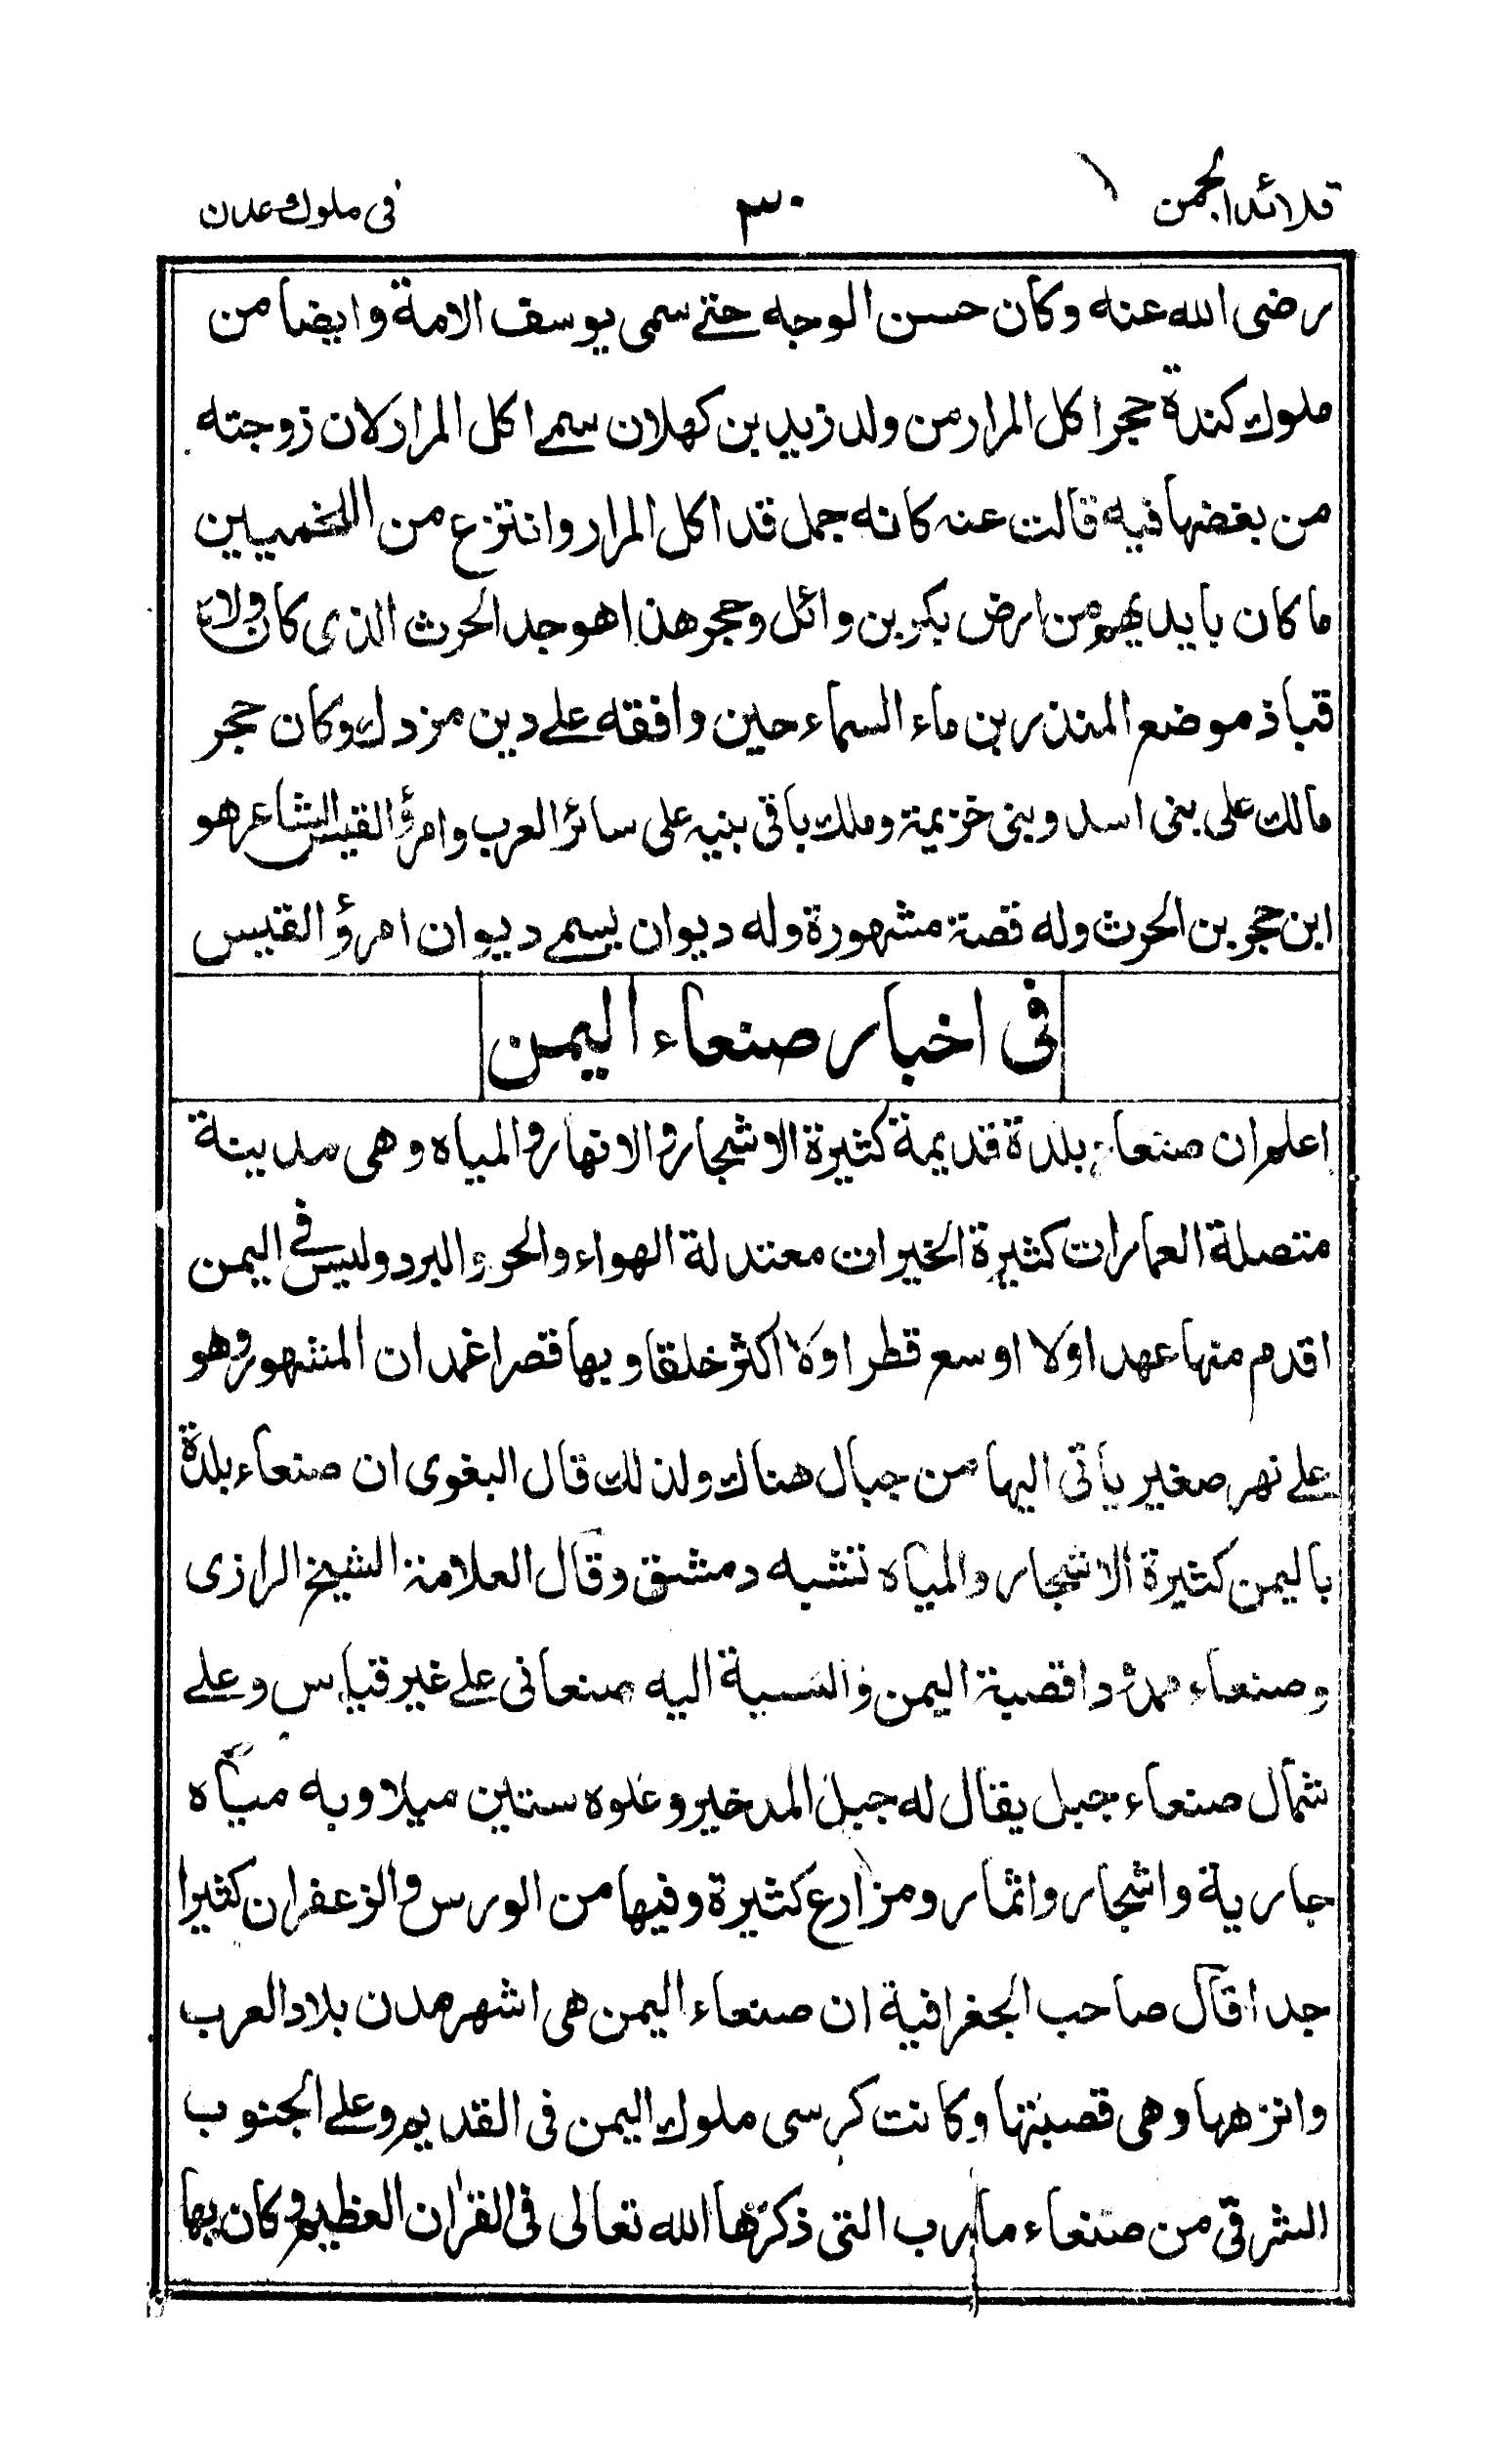 قلائد الجمن ٣٠ فى ملوك عدن
رضى الله عنه وكان حسن الوجه حتے سمى يوسف الامة وايضا من
ملوك كندة حجر اكل المرار من ولد زيد بن كهلان سمے اكل المرار لان زوجته
من بغضها فيه قالت عنه كانه جمل قد اكل المرار وانتزع من اللخميين
ما كان بايديهم من ارض بكر بن وائل وحجر هذا هو جد الحرث الذى كان ولاه
قباذ موضع المنذر بن ماء السماء حين وافقه علے دين مزدك وكان حجر
مالك على بنى اسد وبنى خزيمة وملك باقى بنيه على سائر العرب وامرؤ القيس الشاعر هو
ابن حجر بن الحرث وله قصة مشهورة وله ديوان يسمے ديوان امرؤ القيس
فى اخبار صنعاء اليمن
اعلم ان صنعاء بلدة قديمة كثيرة الاشجار والانهار والمياه وهى مدينة
متصلة العمارات كثيرة الخيرات معتدلة الهواء والحر والبرد وليس فے اليمن
اقدم منها عهدا ولا اوسع قطرا ولا اكثر خلقا وبها قصر اغمدان المشهور وهو
علے نهر صغير ياتى اليها من جبال هناك ولذلك قال البغوى ان صنعاء بلدة
باليمن كثيرة الاشجار والمياه تشبه دمشق وقال العلامة الشيخ الرازى
وصنعاء قصبة اليمن والنسبة اليه صنعانى علے غير قياس وعلے
شمال صنعاء جبل يقال له جبل المدخير وعلوه ستين ميلا وبه مياه
جارية واشجار واثمار ومزارع كثيرة وفيها من الورس والزعفران كثيرا
جدا قال صاحب الجغرافية ان صنعاء اليمن هى اشهر مدن بلاد العرب
وانزهها وهى قصبتها وكانت كرسى ملوك اليمن فى القديم وعلے الجنوب
الشرقى من صنعاء مارب التى ذكرها الله تعالى فى القران العظيم وكان بها